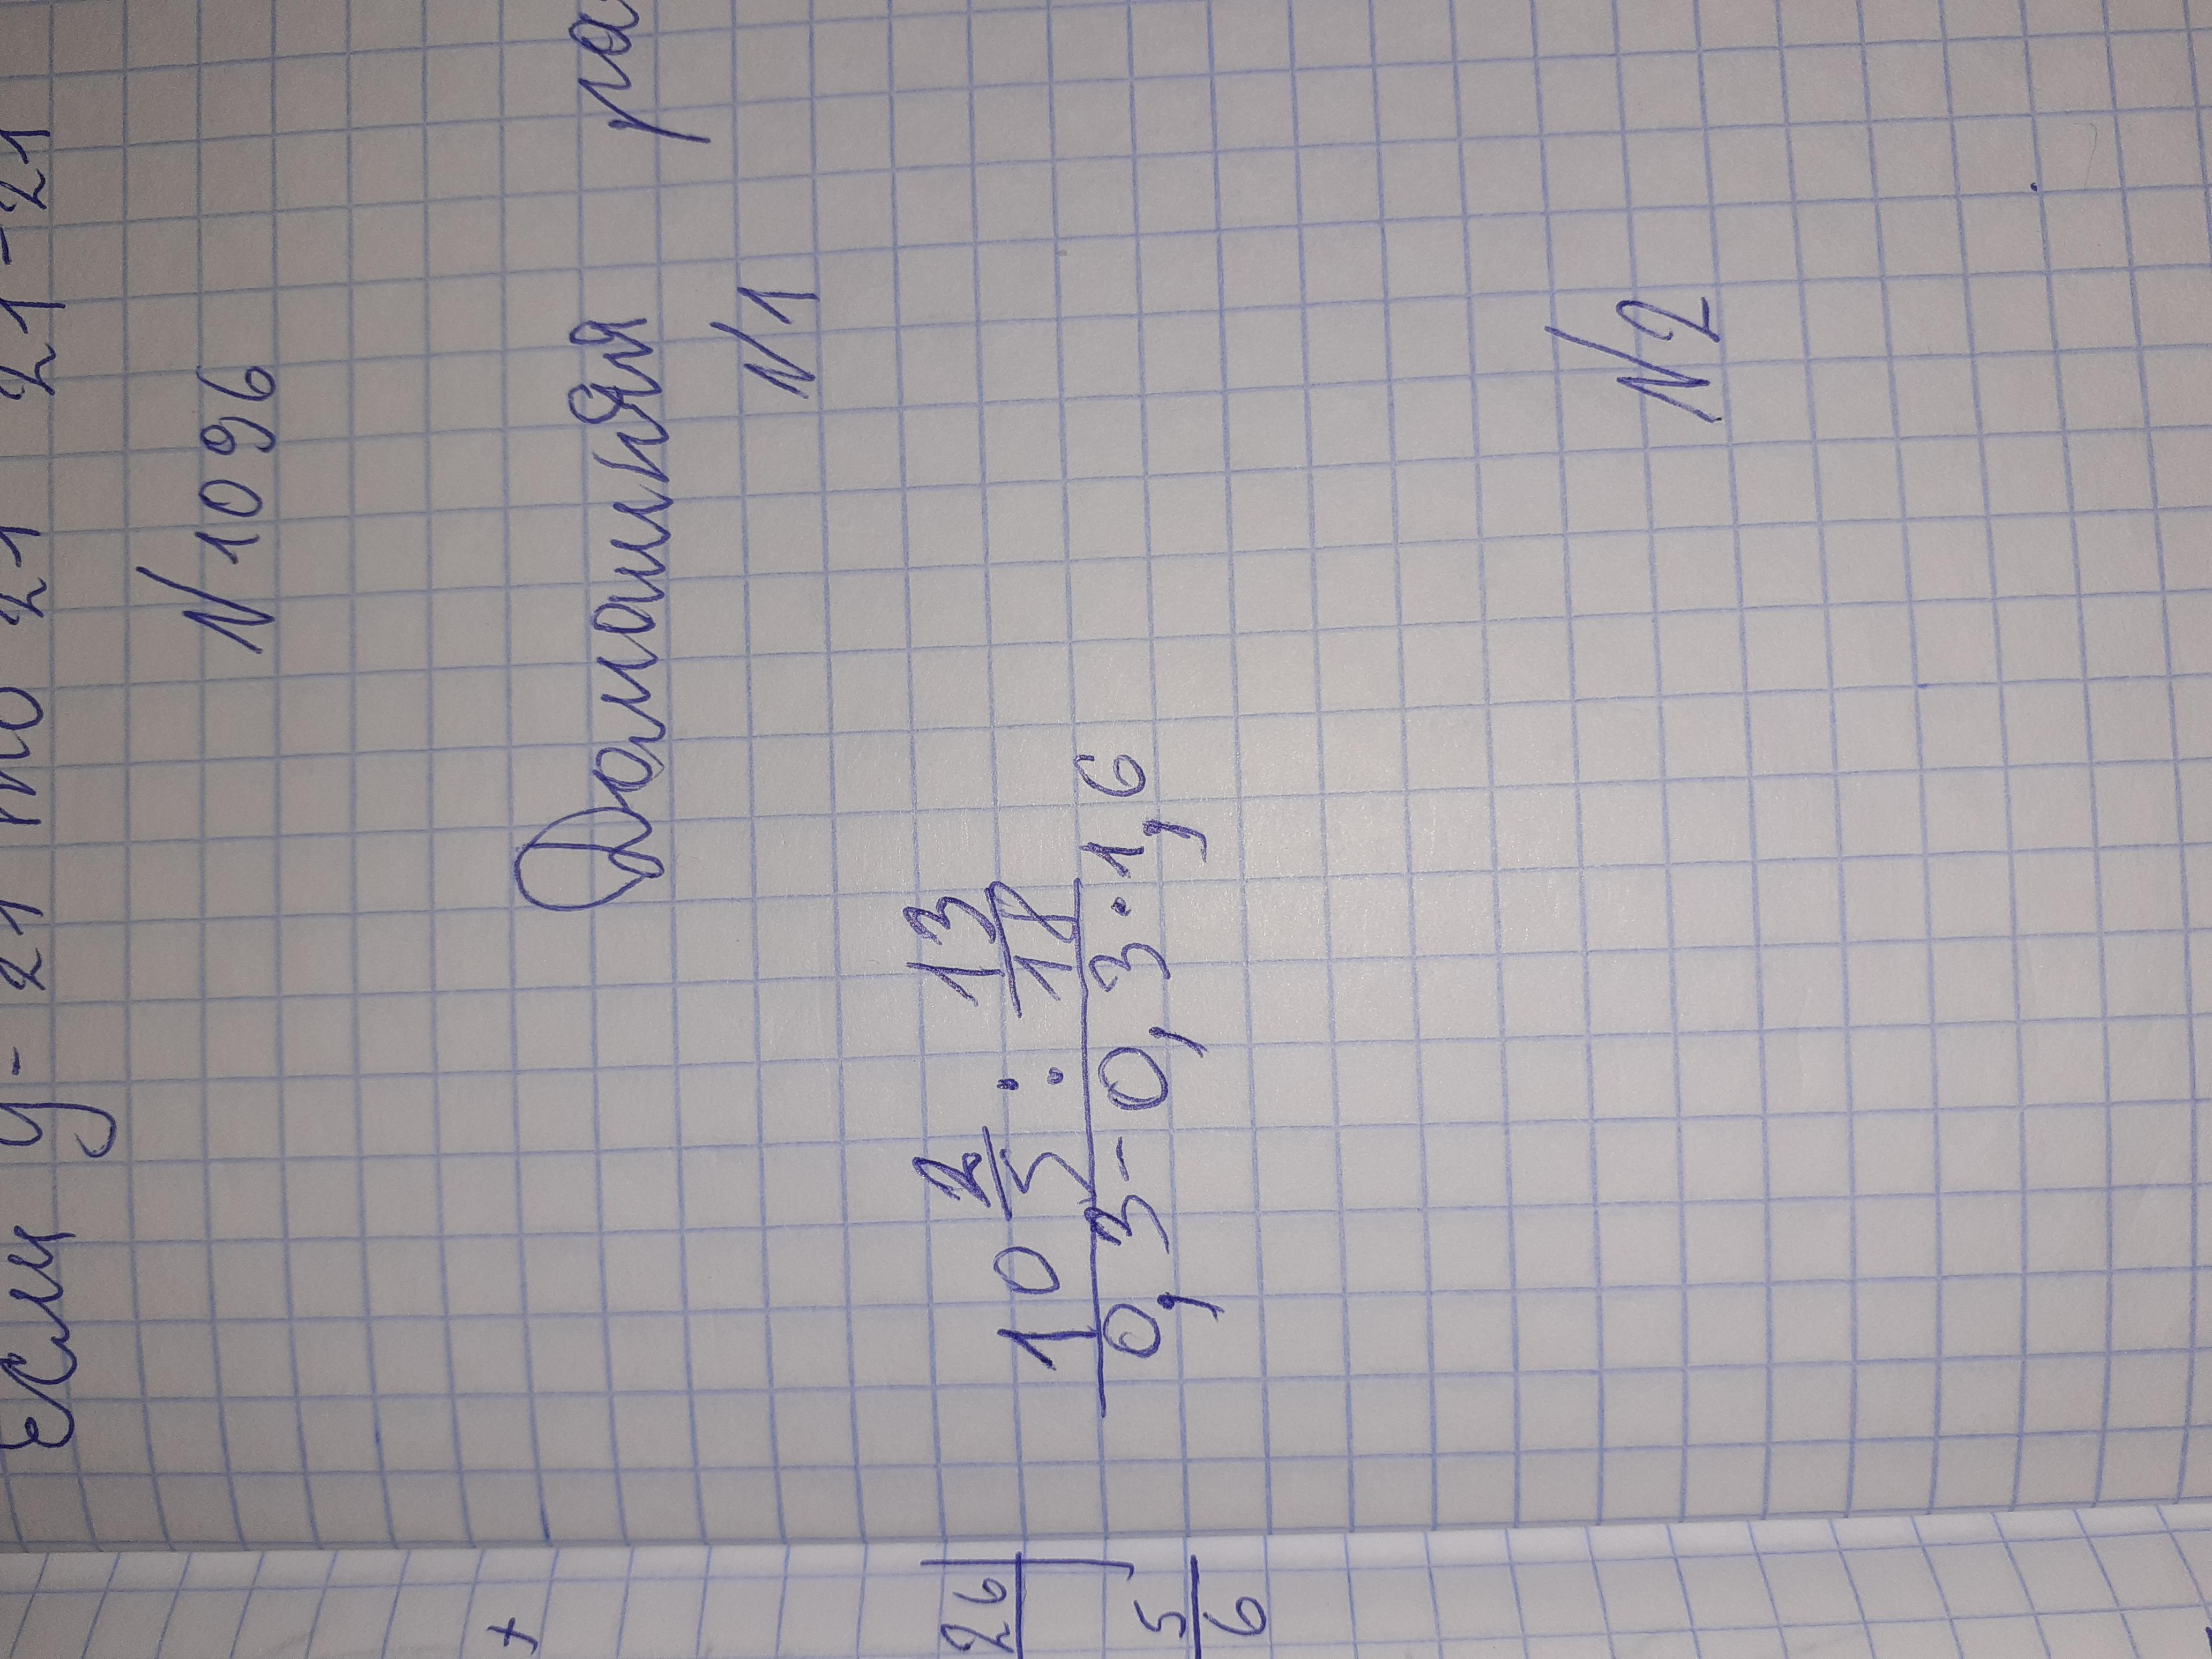 Если y - 21 то 21 21-21
N 1096
Домашняя ра
N 1
10 2/5 : 13/18
0,3-0,3·1,6
N 2
+
26
5/6